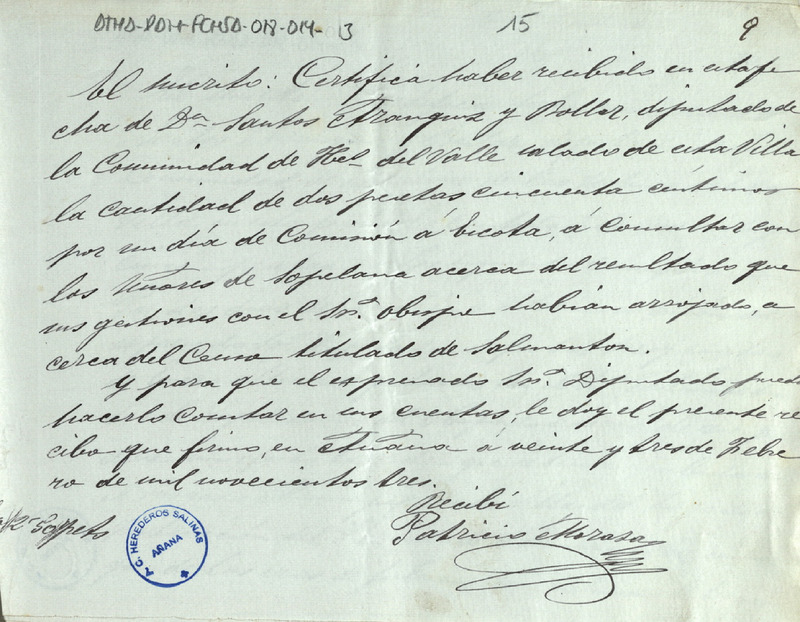 ATHA-DAH-FCHSA-018-014-13 15 9
El suscrito: Certifica haber recibido en esta fe
cha de Dn. Santos Aranguiz y Boller, diputado de
la Comunidad de Hes. del Valle salado de esta Villa
la cantidad de dos pesetas cincuenta céntimos
por un día de Comisión á Escota, á consultar con
los Señores de Sopelana acerca del resultado que
sus gestiones con el Sr. Obispo habían arrojado, a
cerca del Censo titulado de Salmanton.
Y para que el expresado Sr. Diputado pueda
hacerlo constar en sus cuentas, le doy el presente re
cibo que firmo, en Añana á veinte y tres de Febre
ro de mil novecientos tres.
Recibí
Patricio Moraza
2-50 pets
C. HEREDEROS SALINAS
AÑANA